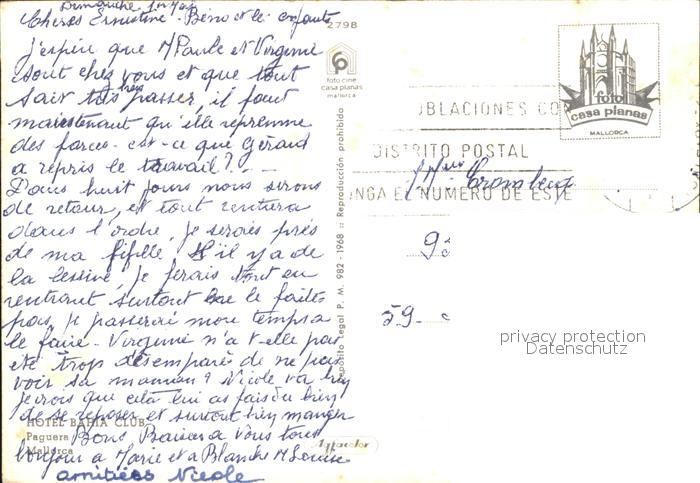 Dimanche
Chères Ernestine - Béno et les enfants
j'espère que M Paule et Virginie
sont chez vous et que tout
soit très bien passer, il faut
maintenant qu'elle reprenne
des forces - est-ce que Gérard
a repris le travail ? - -
Dans huit jours nous serons
de retour, et tout rentrera
dans l'ordre, je serais près
de ma fifille. S'il y a de
la lessive, je ferais tout en
rentrant surtout ne le faites
pas, je passerai mon temps a
le faire - Virginie n'a t-elle pas
été trop désemparés de ne pas
voir sa maman ? Nicole va bien
je crois que cela lui as fais du bien
de se reposer et surtout bien manger
Bons Baisers a vous tous
bonjour a Marie et a Blanche M Louise
amitiées Nicole
HOTEL BAHIA CLUB
Paguera
Mallorca
2798
foto cine
casa planas
mallorca
Depósito Legal P. M. 982 - 1968 :: Reproducción prohibida
OBLACIONES CO
DISTRITO POSTAL
NGA EL NUMERO DE ESTE
foto
casa planas
MALLORCA
59
privacy protection
Datenschutz